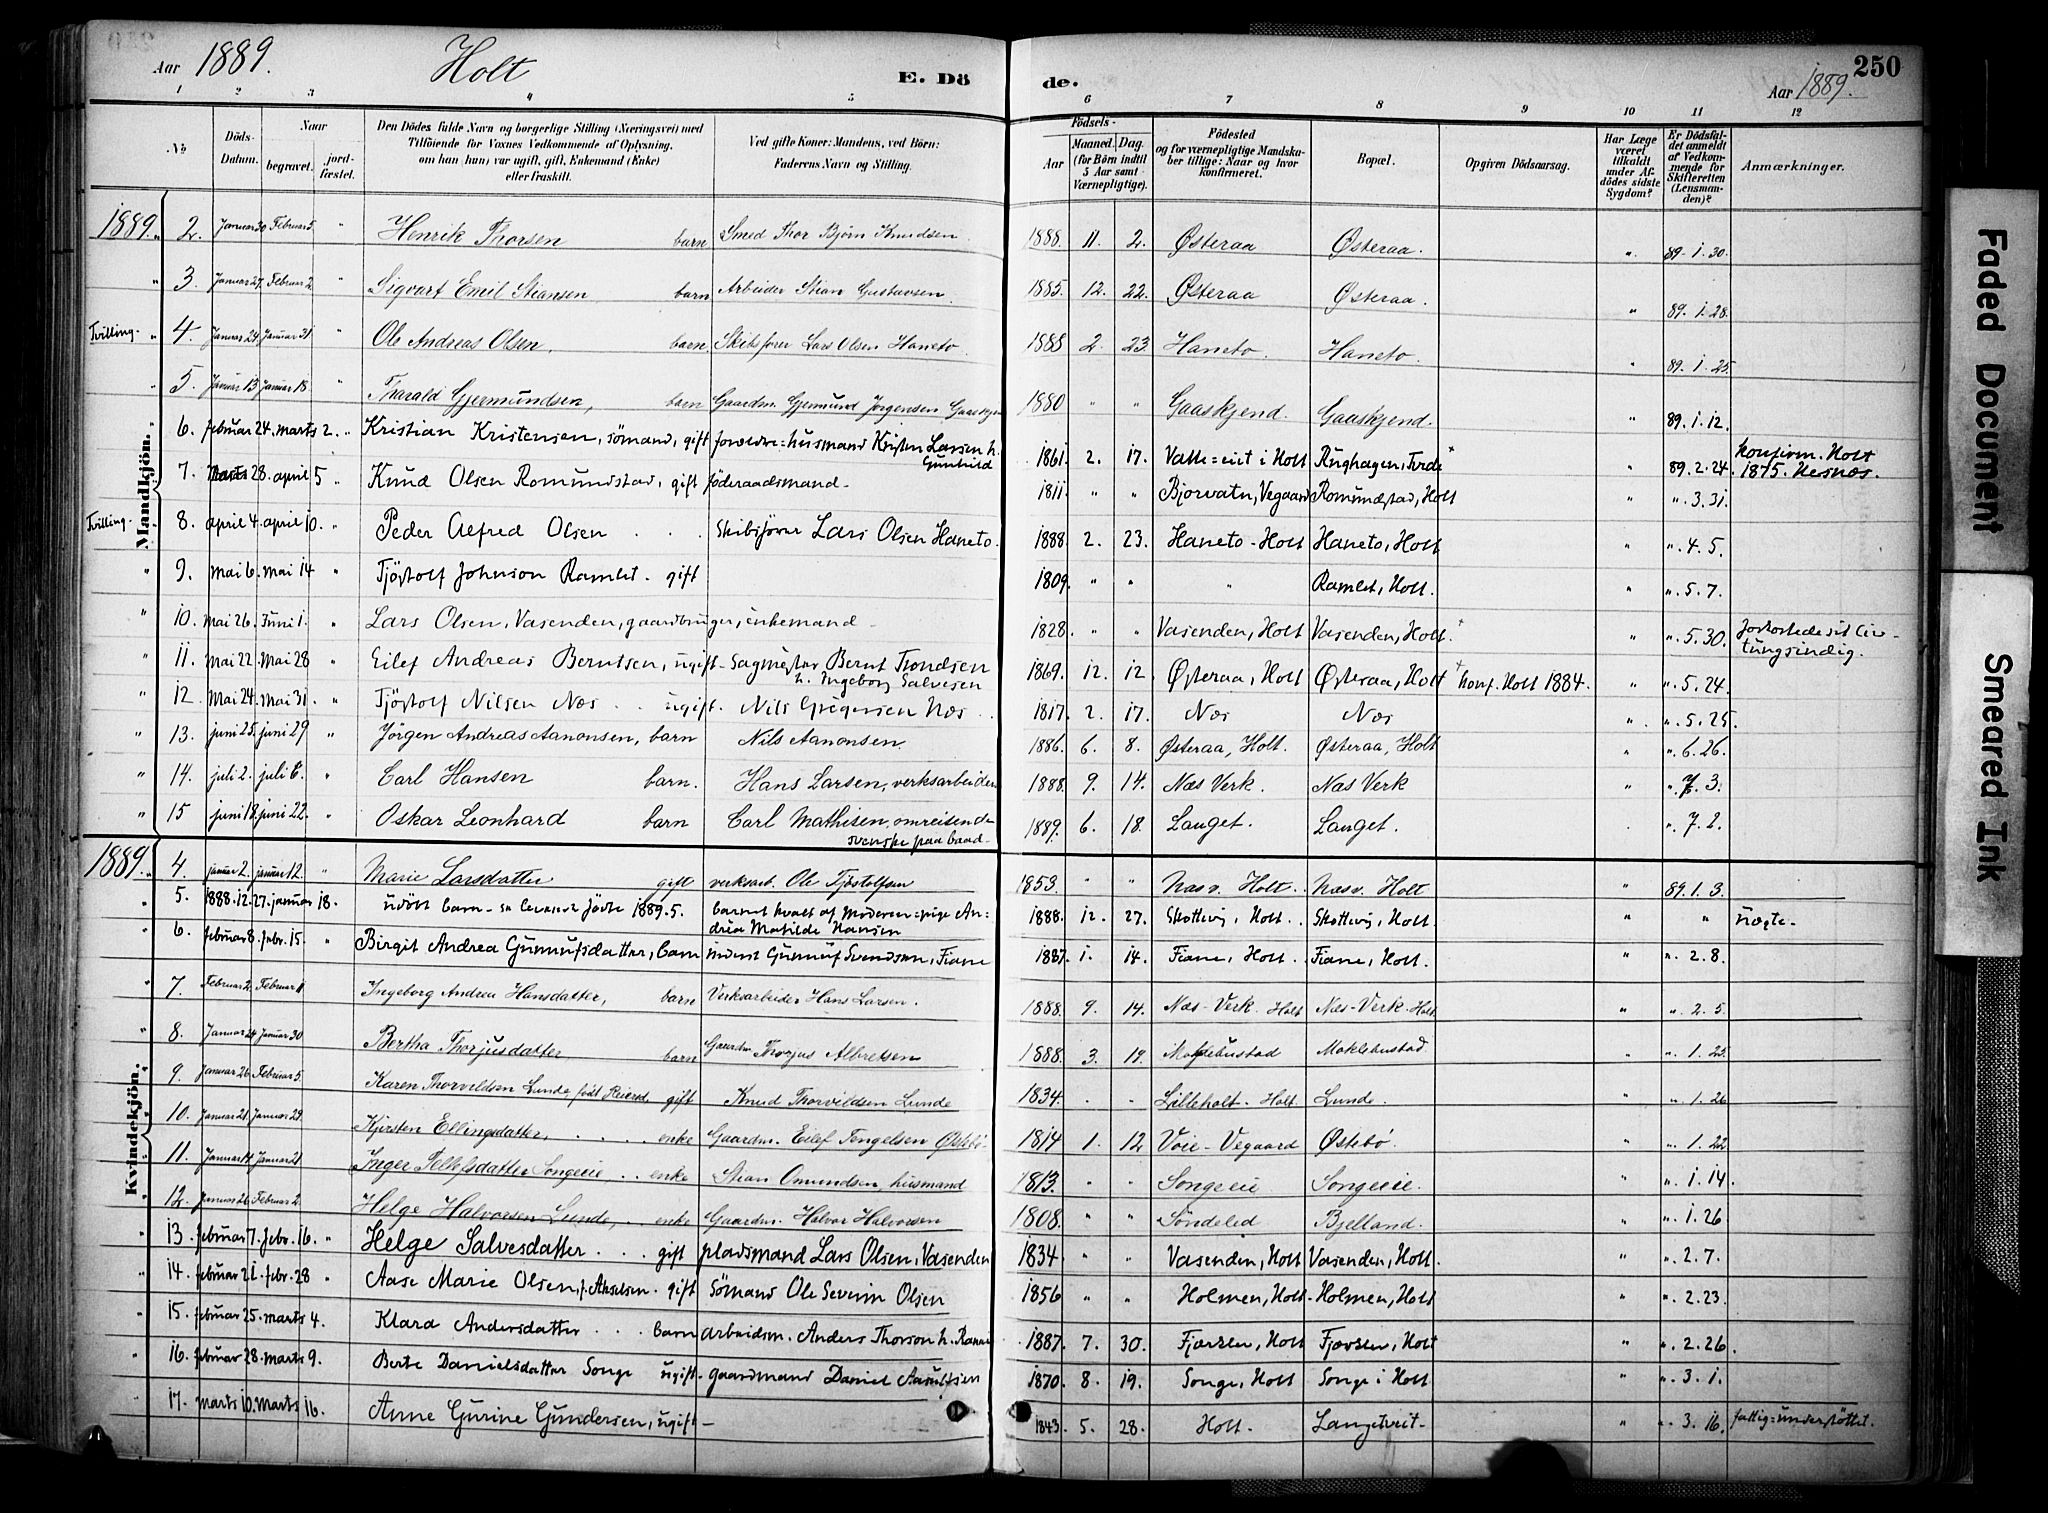 Aar 1889. Holt E. Dö de. Aar 1889. 250
1 2 3 4 5 6 7 8 9 10 11 12
No.
Döds-Datum.
Naar
begravet.
jord-fæstet.
Den Dödes fulde Navn og borgerlige Stilling (Næringsvei) med
Tilföiende for Voxnes Vedkommende af Oplysning,
om han (hun) var ugift, gift, Enkemand (Enke)
eller fraskilt.
Ved gifte Koner: Mandens, ved Börn:
Faderens Navn og Stilling.
Födsels-
Aar
Maaned. Dag.
(for Börn indtil
5 Aar samt
Værnepligtige).
Födested
og for værnepligtige Mandska-
ber tillige: Naar og hvor
konfirmeret.
Bopæl.
Opgiven Dödsaarsag.
Har Læge
været
tilkaldt
under Af-
dödes sidste
Sygdom?
Er Dödsfal-
det anmeldt
af Vedkom-
mende for
Skifteretten
(Lensman-
den)?
Anmærkninger.
Mandkjön.
1889. " 2. Januar 30 Februar 5. " Henrik Thorsen barn Smed Thor Bjørn Knudsen. 1888. 11. 2. Østeraa Østeraa. " 89. 1. 30.
" 3. Januar 27. Februar 2. " Sigvart Emil Stiansen barn. Arbeider Stian Gustavsen. 1885. 12. 22. Østeraa Østeraa. " 89. 1. 28.
Tvilling. " 4. Januar 24 Januar 31 " Ole Andreas Olsen, barn. Skibsfører Lars Olsen Haneto. 1888 2. 23. Haneto. Haneto. " 89. 1. 25.
" 5. Januar 13 Januar 18. " Tharald Gjermundsen, barn Gaardm. Gjermund Jørgensen 1880 " " Gaaskjend. Gaaskjend. " 89. 1. 12.
6. februar 24. marts 2. " Kristian Kristensen, sömand, gift foreldre = husmand Kristen Larsen h. Gunhild 1861. 2. 17. i Holt " 89. 2. 24. konfirm. Holt 1875.
7. marts 28. april 5 " Knud Olsen Romundstad, gift föderaadsmand. 1811. " " Bjorvatn, Vegaard Romundstad, Holt " ". 3. 31.
Tvilling 8. april 4. april 10. " Peder Alfred Olsen . . . Skibsförer Lars Olsen Haneto. 1888. 2. 23. Haneto - Holt Haneto, Holt " ". 4. 5.
" 9. Mai 6. Mai 14 " Tjöstolf Johnson Ramlet. gift 1809. " " " Ramlet, Holt. " ". 5. 7.
" 10. Mai 26. Juni 1. " Lars Olsen, Vasenden, gaardbruger, enkemand. 1828. " " Vasenden, Holt Vasenden, Holt. + " ". 5. 30.
" 11. Mai 22. Mai 28 " Eilef Andreas Berntsen, ugift. Sagmester Bernt Trondsen h. Ingeborg Salvesen 1869. 12. 12. Østeraa, Holt Østeraa, Holt + konf. Holt 1884. " ". 5. 24. tungsindig.
" 12. Mai 24. Mai 31. " Tjöstolf Nilsen Næs . . ugift. Nils Gregersen Næs . . 1817. 2. 17. Næs Næs " ". 5. 25.
" 13. juni 25. juni 29 " Jörgen Andreas Aanonsen, barn Nils Aanonsen. 1886. 6. 8. Østeraa, Holt. Østeraa, Holt " ". 6. 26.
" 14. juli 2. juli 6. " Carl Hansen barn. Hans Larsen, verksarbeider 1888. 9. 14. Næs Verk. Næs Verk " ". 7. 3.
" 15 juni 18. juni 22. " Oskar Leonhard barn Carl Mathisen, omreisende svenske paa baad. 1889. 6. 18. Langet. Langet. . " 7. 2.
Kvindekjön.
1889. " 4. januar 2. januar 12. " Marie Larsdatter gift verksarb. Ole Tjöstolfsen 1853. " " Næs v. Holt. Næs v. Holt " 89. 1. 3.
" 5. 1888. 12. 27. januar 18. udöbt barn - 1889. 5. barnet kvalt af Moderen = pige Andrea Matilde Hansen 1888. 12. 27. Skottevig, Holt. Skottevig, Holt. " " uægte.
" 6. februar 8. febr. 15. " Birgit Andrea Gunnufsdatter, barn inderst Gunnuf Svendsen, Fiane 1887. 1. 14. Fiane, Holt. Fiane, Holt. " ". 2. 8.
" 7. Februar 2. Februar 11 Ingeborg Andrea Hansdatter, barn Verksarbeider Hans Larsen. 1888. 9. 14. Næs-Verk. Holt Næs-Verk. Holt. " ". 2. 5.
" 8. Januar 24 Januar 30 Bertha Thorjusdatter barn Gaardm. Thorjus Albretsen 1888. 3. 19. Moklebustad Moklebustad. " ". 1. 25.
" 9. Januar 26. Februar 5. Karen Thorvildsen Lunde, født Reiersd. gift Knud Thorvildsen Lunde 1834. . " Lilleholt. Holt Lunde. " ". 1. 26
" 10. Januar 21. Januar 29. Kjirsten Ellingsdatter, . . . . enke Gaardm. Eilef Tengelsen Østebø. 1814 1. 12 Voie-Vegaard Østebø. " ". 1. 22
11. Januar 14. Januar 21 Inger Tellefsdatter Songeeie, . . enke Stian Omundsen, husmand 1813. " " Songeeie Songeeie. " ". 1. 14.
" 12. Januar 26. Februar 2. Helge Halvorsen Lunde, . . enke Gaardm. Halvor Halvorsen 1808. " " Söndeled Bjelland. " ". 1. 26
" 13. februar 7. febr. 16. " Helge Salvesdatter . . . gift pladsmand Lars Olsen, Vasenden 1834 " " Vasenden, Holt Vasenden, Holt. " ". 2. 7.
" 14. februar 21. febr. 28 " Aase Marie Olsen, f. Akselsen. gift Sömand Ole Severin Olsen 1856 " " Holmen, Holt. Holmen, Holt " ". 2. 23.
" 15. februar 25. marts 4. Klara Andersdatter . . . barn arbeidsm. Anders Thorson h. 1887. 7. 30. Fjærslen, Holt Fjærslen, Holt " ". 2. 26.
" 16. februar 28. Marts 9. Berte Danielsdatter Songe ugift. gaardmand Daniel Aanultsen 1870. 8. 19. Songe, Holt Songe i Holt " ". 3. 1.
" 17. marts 10. Marts 16. Anne Gurine Gundersen, ugift. 1843. 5. 28. Holt. Langetveit. " ". 3. 16. fattig=understöttet.
Faded Document
Smeared Ink